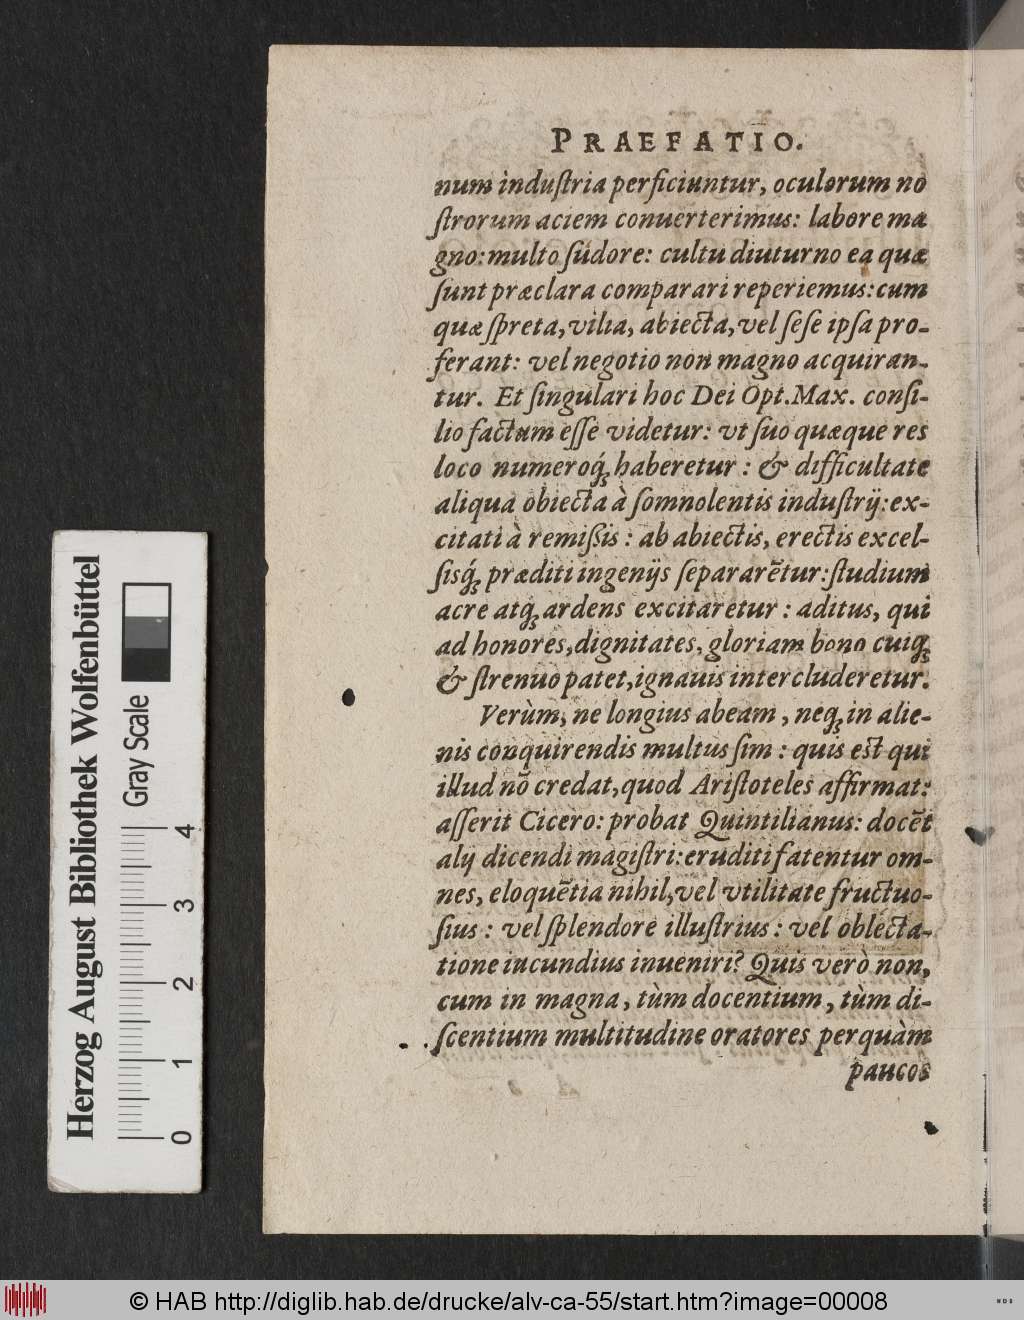 PRAEFATIO.
num induſtria perficiuntur, oculorum no
ſtrorum aciem conuerterimus: labore ma
gno: multo ſudore: cultu diuturno ea quæ
ſunt præclara comparari reperiemus: cum
quæ ſpreta, vilia, abiecta, vel ſeſe ipſa pro-
ferant: vel negotio non magno acquiran-
tur. Et ſingulari hoc Dei Opt. Max. conſi-
lio factum eſſe videtur: vt ſuo quæque res
loco numeroq́ꝫ haberetur: & difficultate
aliqua obiecta à ſomnolentis induſtrij: ex-
citati à remiſsis: ab abiectis, erectis excel-
ſisq́ꝫ præditi ingenijs ſepararẽtur: ſtudium
acre atq́ꝫ ardens excitaretur: aditus, qui
ad honores, dignitates, gloriam bono cuiqꝫ
& ſtrenuo patet, ignauis intercluderetur.
Verùm, ne longius abeam, neqꝫ in alie-
nis conquirendis multus ſim: quis est qui
illud nõ credat, quod Ariſtoteles affirmat:
aſſerit Cicero: probat Quintilianus: docẽt
alij dicendi magiſtri: eruditi fatentur om-
nes, eloquẽtia nihil, vel vtilitate fructuo-
ſius: vel ſplendore illuſtrius: vel oblecta-
tione iucundius inueniri? Quis verò non,
cum in magna, tùm docentium, tùm di-
ſcentium multitudine oratores perquàm
paucos
Herzog August Bibliothek Wolfenbüttel
Gray Scale
0 1 2 3 4
© HAB http://diglib.hab.de/drucke/alv-ca-55/start.htm?image=00008